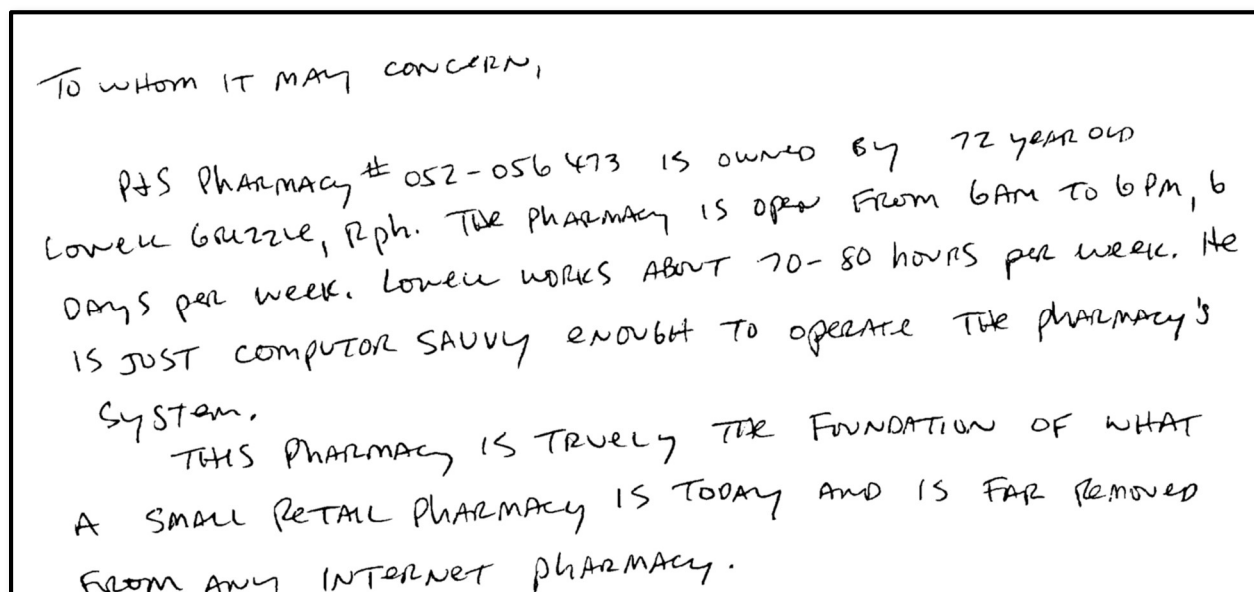 To whom it may concern,
P&S Pharmacy # 052-056473 is owned by 72 year old
Lowell Grizzle, Rph. The pharmacy is open from 6am to 6pm, 6
days per week. Lowell works about 70-80 hours per week. He
is just computor savvy enough to operate the pharmacy's
system.
This pharmacy is truely the foundation of what
a small retail pharmacy is today and is far removed
from any internet pharmacy.